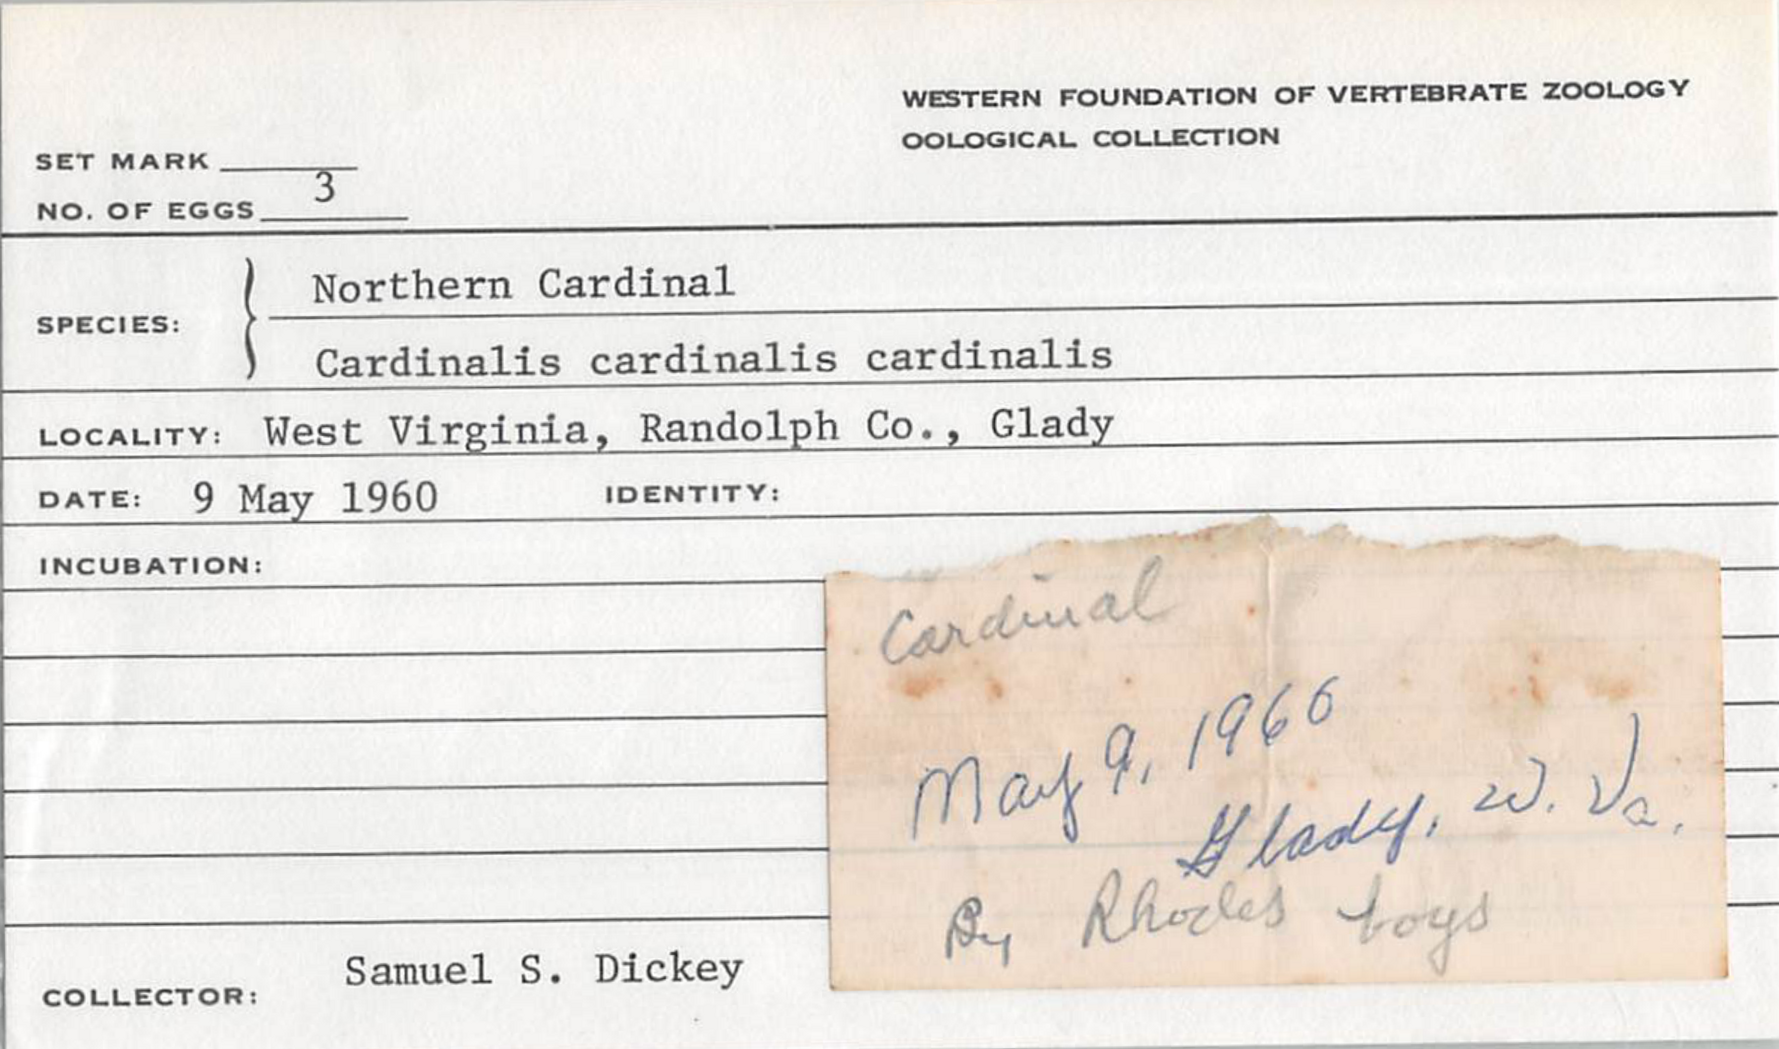 WESTERN FOUNDATION OF VERTEBRATE ZOOLOGY
OOLOGICAL COLLECTION
SET MARK
NO. OF EGGS 3
SPECIES: Northern Cardinal
Cardinalis cardinalis cardinalis
LOCALITY: West Virginia, Randolph Co., Glady
DATE: 9 May 1960 IDENTITY:
INCUBATION:
Cardinal
May 9, 1960
Glady, W. Va.
By Rhodes boys
COLLECTOR: Samuel S. Dickey